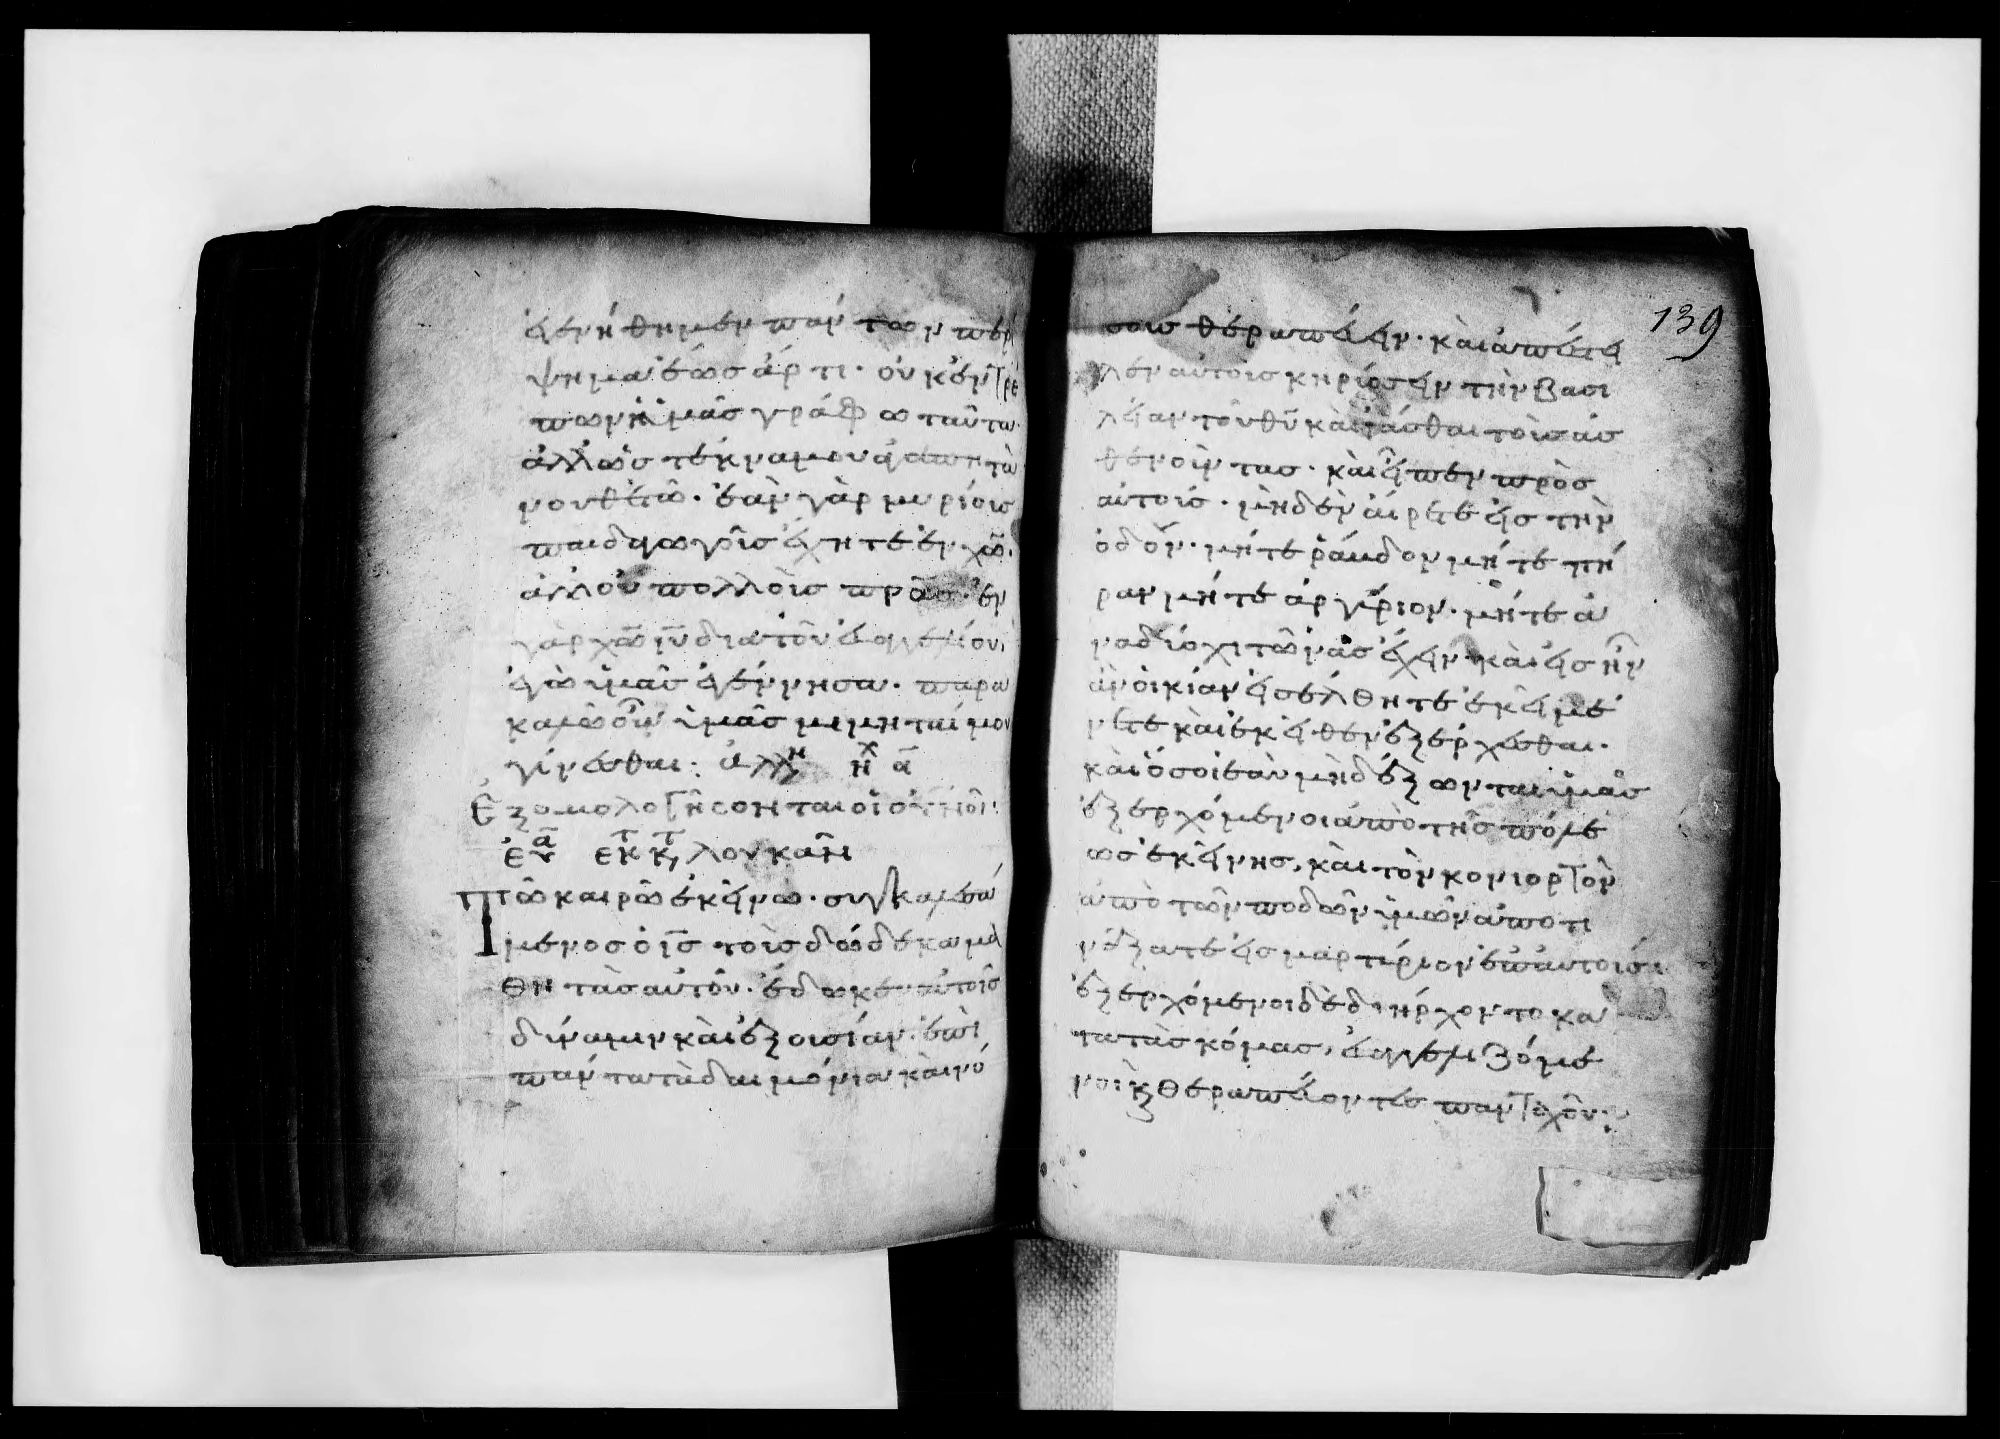 ἐγενήθημεν πάντων περί
ψημα ἕως ἄρτι· οὐκ ἐντρέ
πων ἡμᾶς γράφω ταῦτα·
ἀλλ' ὡς τέκνα μου ἀγαπητὰ
νουθετῶ· ἐὰν γὰρ μυρίοις
παιδαγωγοῖς ἔχητε ἐν χω̅·
ἀλλ' οὐ πολλοῖς πρας· ἐν
γὰρ χω̅ ιυ̅ διὰ τοῦ εὐαγγελίου,
ἐγὼ ὑμᾶς ἐγέννησα· παρα
καλῶ οὖν ὑμᾶς μιμηταί μου
γίνεσθαι: ἀλλη ἠχ α
Ἐξομολογήσονται οἱ οὐνοὶ:
ευα εκ τ κτ, λουκᾶν
Τῶ καιρῶ ἐκείνω· συγκαλεσά
μενος ὁ ις̅ τοῖς δώδεκα μα
θητὰς αὐτοῦ· ἔδωκεν αὐτοῖς
δύναμιν καὶ ἐξουσίαν· ἐπὶ
πάντα τὰ δαιμόνια καὶ νό
139
σοις θεραπεύειν· καὶ ἀπέστει
λεν αὐτοῖς κηρύσειν τὴν βασι
λείαν τοῦ θυ̅ καὶ ἰᾶσθαι τοῖς ἀσ
θενοῦντας· καὶ εἶπεν πρὸς
αὐτούς· μὴδὲν αἴρετε εἰς τὴν
ὁδόν· μήτε ῥάβδον μήτε πή
ραν μήτε ἀργύριον· μήτε ἀ
ναδύο χιτῶνας ἔχειν· καὶ εἰς ἣν
ἂν οἰκίαν εἰσέλθητε ἐκεῖ μέ
νετε καὶ ἐκεῖθεν ἐξέρχεσθαι·
καὶ ὅσοι ἐὰν μὴ δέξωνται ὑμᾶς
ἐξερχόμενοι ἀπὸ τῆς πόλε
ως ἐκείνης, καὶ τὸν κονιορτὸν
ἀπὸ τῶν ποδῶν ὑμῶν ἀποτι
νάξατε εἰς μαρτύριον ἐπ' αὐτούς:
ἐξερχόμενοι δὲ διήρχοντο κα
τὰ τὰς κόμας, εὐαγγελιζόμε
νοι κ θεραπεύοντες πανταχοῦ: